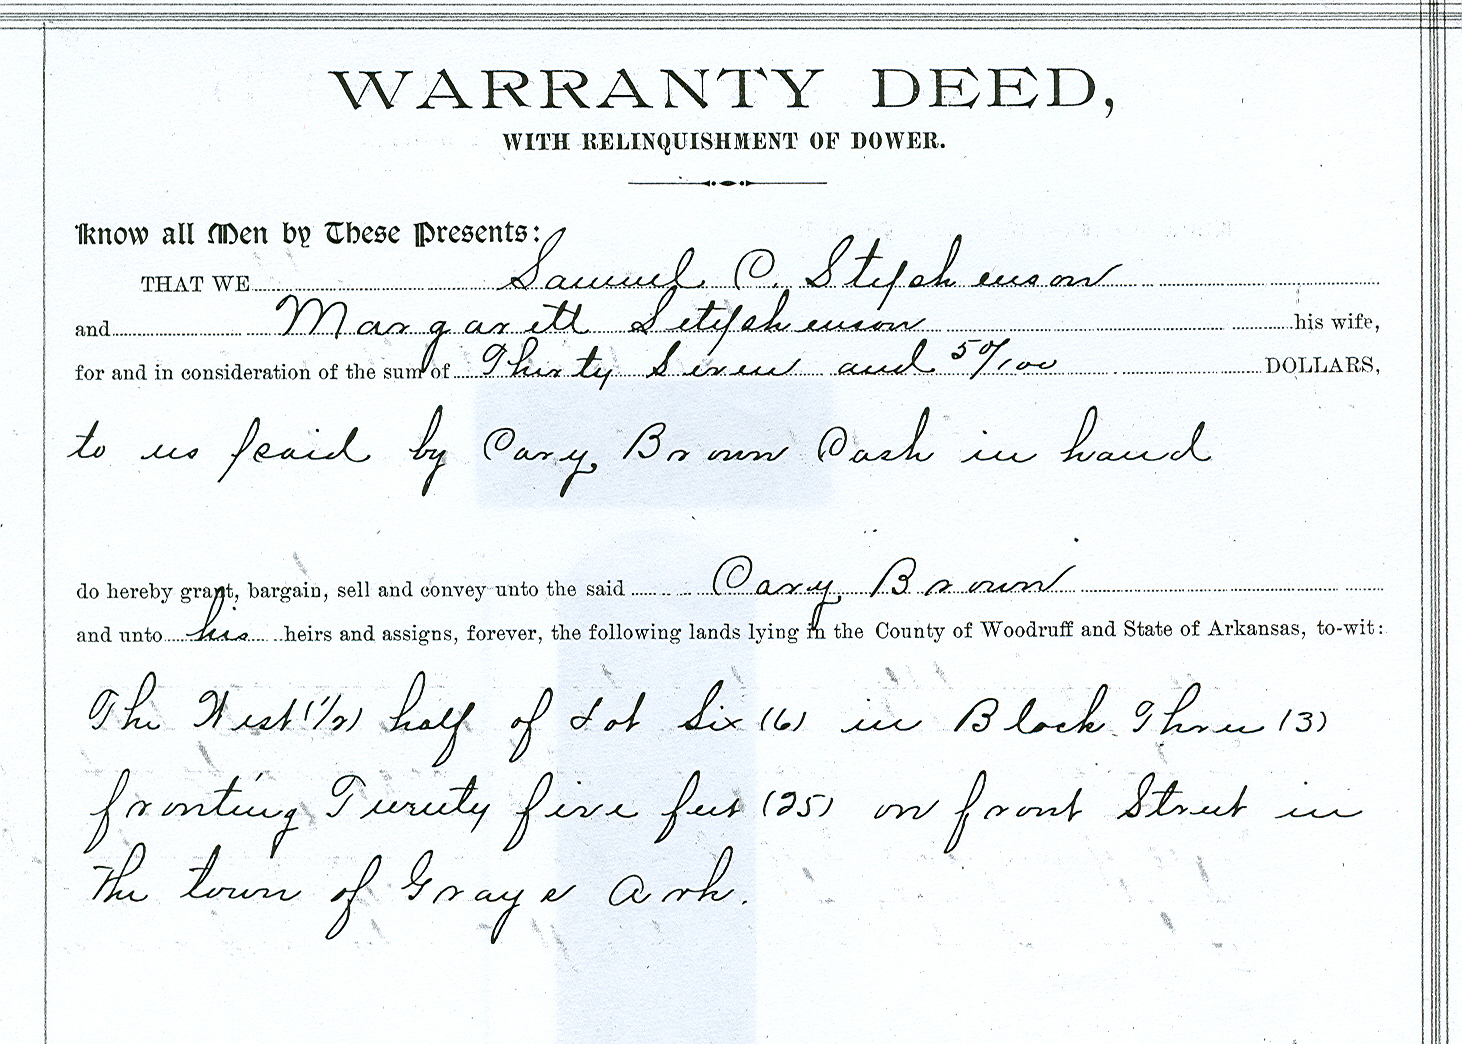 WARRANTY DEED,
WITH RELINQUISHMENT OF DOWER.
Know all Men by These Presents:
THAT WE Samuel C. Stephenson
and Margarett Setephenson his wife,
for and in consideration of the sum of Thirty Seven and 50/100 DOLLARS,
to us paid by Cary Brown Cash in hand
do hereby grant, bargain, sell and convey unto the said Cary Brown
and unto his heirs and assigns, forever, the following lands lying in the County of Woodruff and State of Arkansas, to-wit:
The West (1/2) half of Lot Six (6) in Block Three (3)
fronting Twenty five feet (25) on front Street in
The town of Grays Ark.